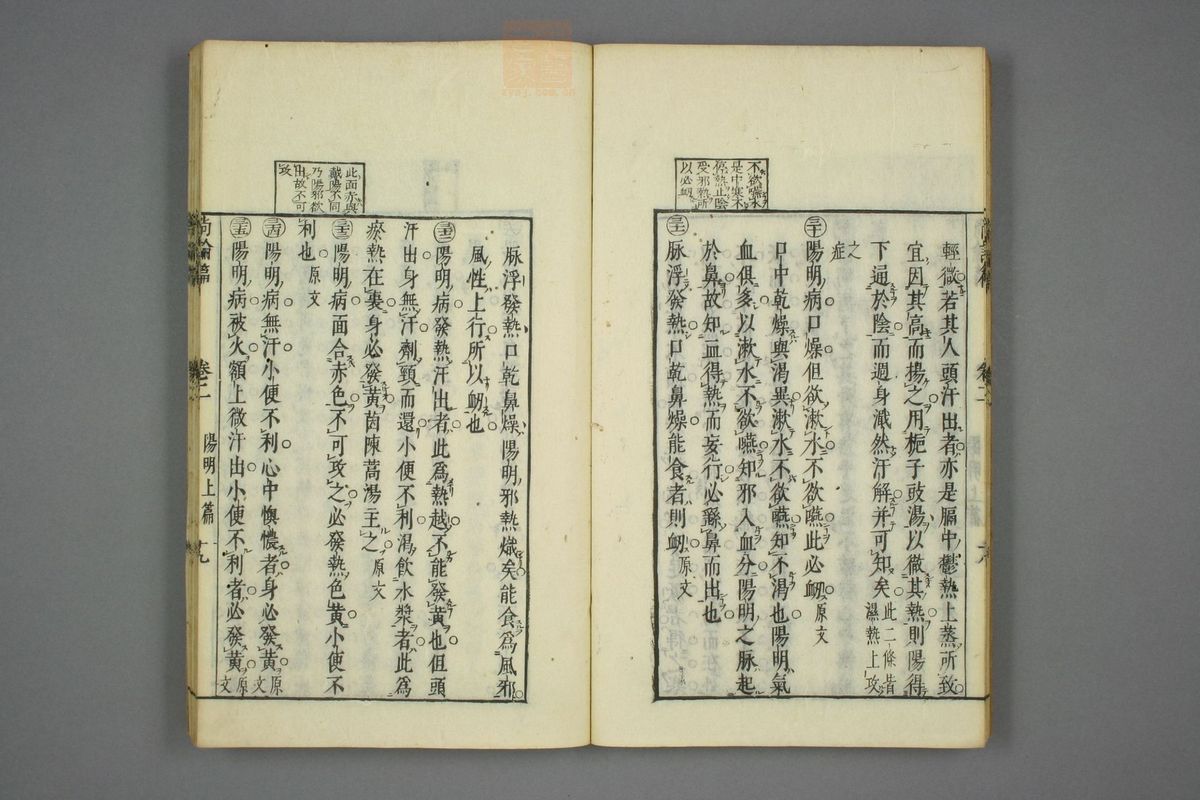 不欲嚥水
是中寒不
停熱止陰
受邪熱所
以必衂
輕微若其人頭汗出者亦是膈中鬱熱上蒸所致
宜因其高而揚之用梔子豉湯以徹其熱則陽得
下通於陰而週身濈然汗解并可知矣此二條昔濕熱上攻
之症
㉚陽明病口燥但欲漱水不欲嚥此必衂原文
口中乾燥與渴異漱水不欲嚥知不渴也陽明氣
血俱多以漱水不欲嚥知邪入血分陽明之脉起
於鼻故知血得熱而妄行必繇鼻而出也
㉛脉浮發熱口乾鼻燥能食者則衂原文
尚論篇
卷二
陽明上篇
此面赤與
戴陽不同
乃陽邪欲
出故不可
攻
脉浮發熱口乾鼻燥陽明邪熱熾矣能食爲風邪
風性上行所以衂也
㉜陽明病發熱汗出者此爲熱越不能發黃也但頭
汗出身無汗劑頸而還小便不利渴飲水漿者此爲
瘀熱在裏身必發黃茵陳蒿湯主之原文
㉝陽明病面合赤色不可攻之必發熱色黃小便不
利也原文
㉞陽明病無汗小便不利心中懊憹者身必發黃原文
㉟陽明病被火額上微汗出小便不利者必發黃原文
尚論篇
卷二
陽明上篇
十九